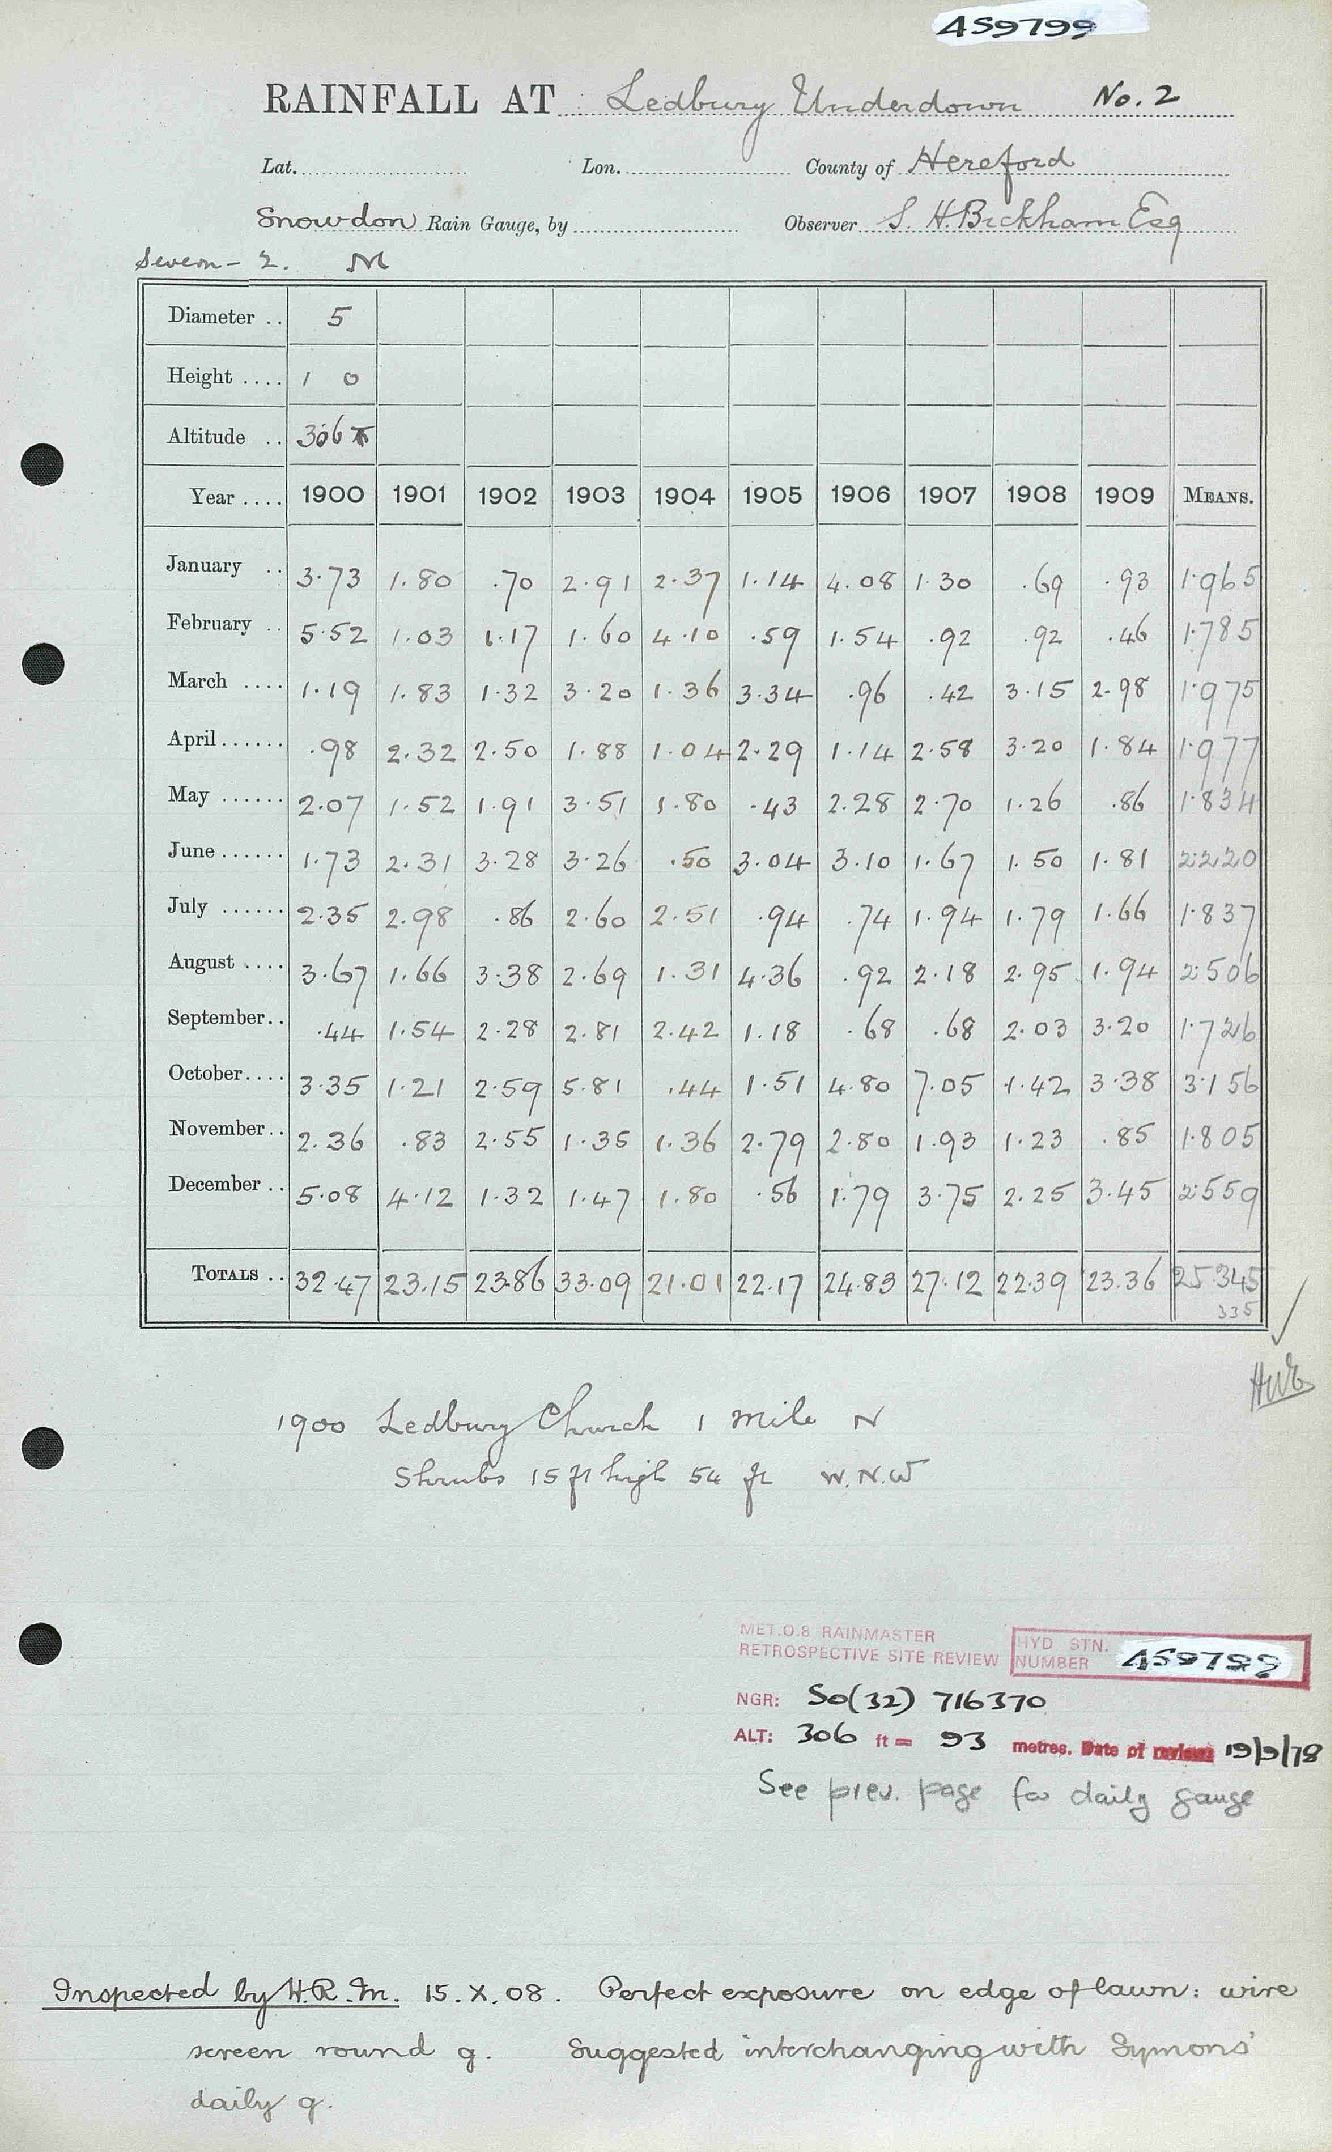 459799
RAINFALL AT Ledbury Underdown No. 2
Lat. Lon. County of Hereford
Snowdon Rain Gauge, by Observer S. H. Bickham Esq
Severn - 2. M
Diameter .. 5
Height .... 1 0
Altitude .. 306
Year .... 1900 1901 1902 1903 1904 1905 1906 1907 1908 1909 MEANS.
January .. 3.73 1.80 .70 2.91 2.37 1.14 4.08 1.30 .69 .93 1.965
February .. 5.52 1.03 1.17 1.60 4.10 .59 1.54 .92 .92 .46 1.785
March .... 1.19 1.83 1.32 3.20 1.36 3.34 .96 .42 3.15 2.98 1.975
April...... .98 2.32 2.50 1.88 1.04 2.29 1.14 2.58 3.20 1.84 1.977
May ...... 2.07 1.52 1.91 3.51 1.80 .43 2.28 2.70 1.26 .86 1.834
June...... 1.73 2.31 3.28 3.26 .50 3.04 3.10 1.67 1.50 1.81 2.220
July ...... 2.35 2.98 .86 2.60 2.51 .94 .74 1.94 1.79 1.66 1.837
August .... 3.67 1.66 3.38 2.69 1.31 4.36 .92 2.18 2.95 1.94 2.506
September.. .44 1.54 2.28 2.81 2.42 1.18 .68 .68 2.03 3.20 1.726
October.... 3.35 1.21 2.59 5.81 .44 1.51 4.80 7.05 1.42 3.38 3.156
November.. 2.36 .83 2.55 1.35 1.36 2.79 2.80 1.93 1.23 .85 1.805
December .. 5.08 4.12 1.32 1.47 1.80 .56 1.79 3.75 2.25 3.45 2.559
TOTALS .. 32.47 23.15 23.86 33.09 21.01 22.17 24.83 27.12 22.39 23.36 25.345
335
1900 Ledbury Church 1 mile N
Shrubs 15 ft high 54 ft W.N.W
MET.O.8 RAINMASTER
RETROSPECTIVE SITE REVIEW
HYD STN. NUMBER 459799
NGR: SO(32) 716370
ALT: 306 ft = 93 metres. Date of review 19/9/78
See prev. page for daily gauge
Inspected by H.R.M. 15.X.08. Perfect exposure on edge of lawn: wire
screen round g. Suggested interchanging with Symons'
daily g.